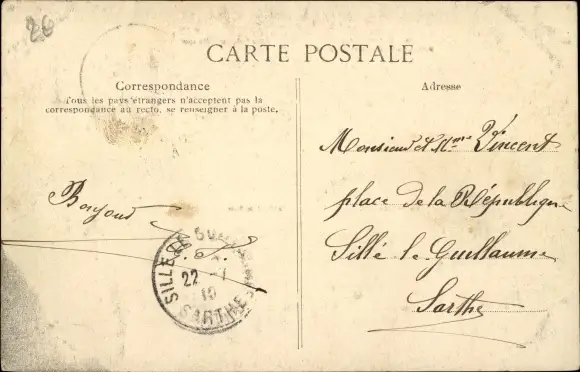 26
CARTE POSTALE
Correspondance
Tous les pays étrangers n'acceptent pas la
correspondance au recto, se renseigner à la poste.
Adresse
Monsieur et Mme Vincent
place de la République
Sillé le Guillaume
Sarthe
SILLE
22 -1
10
SARTHE